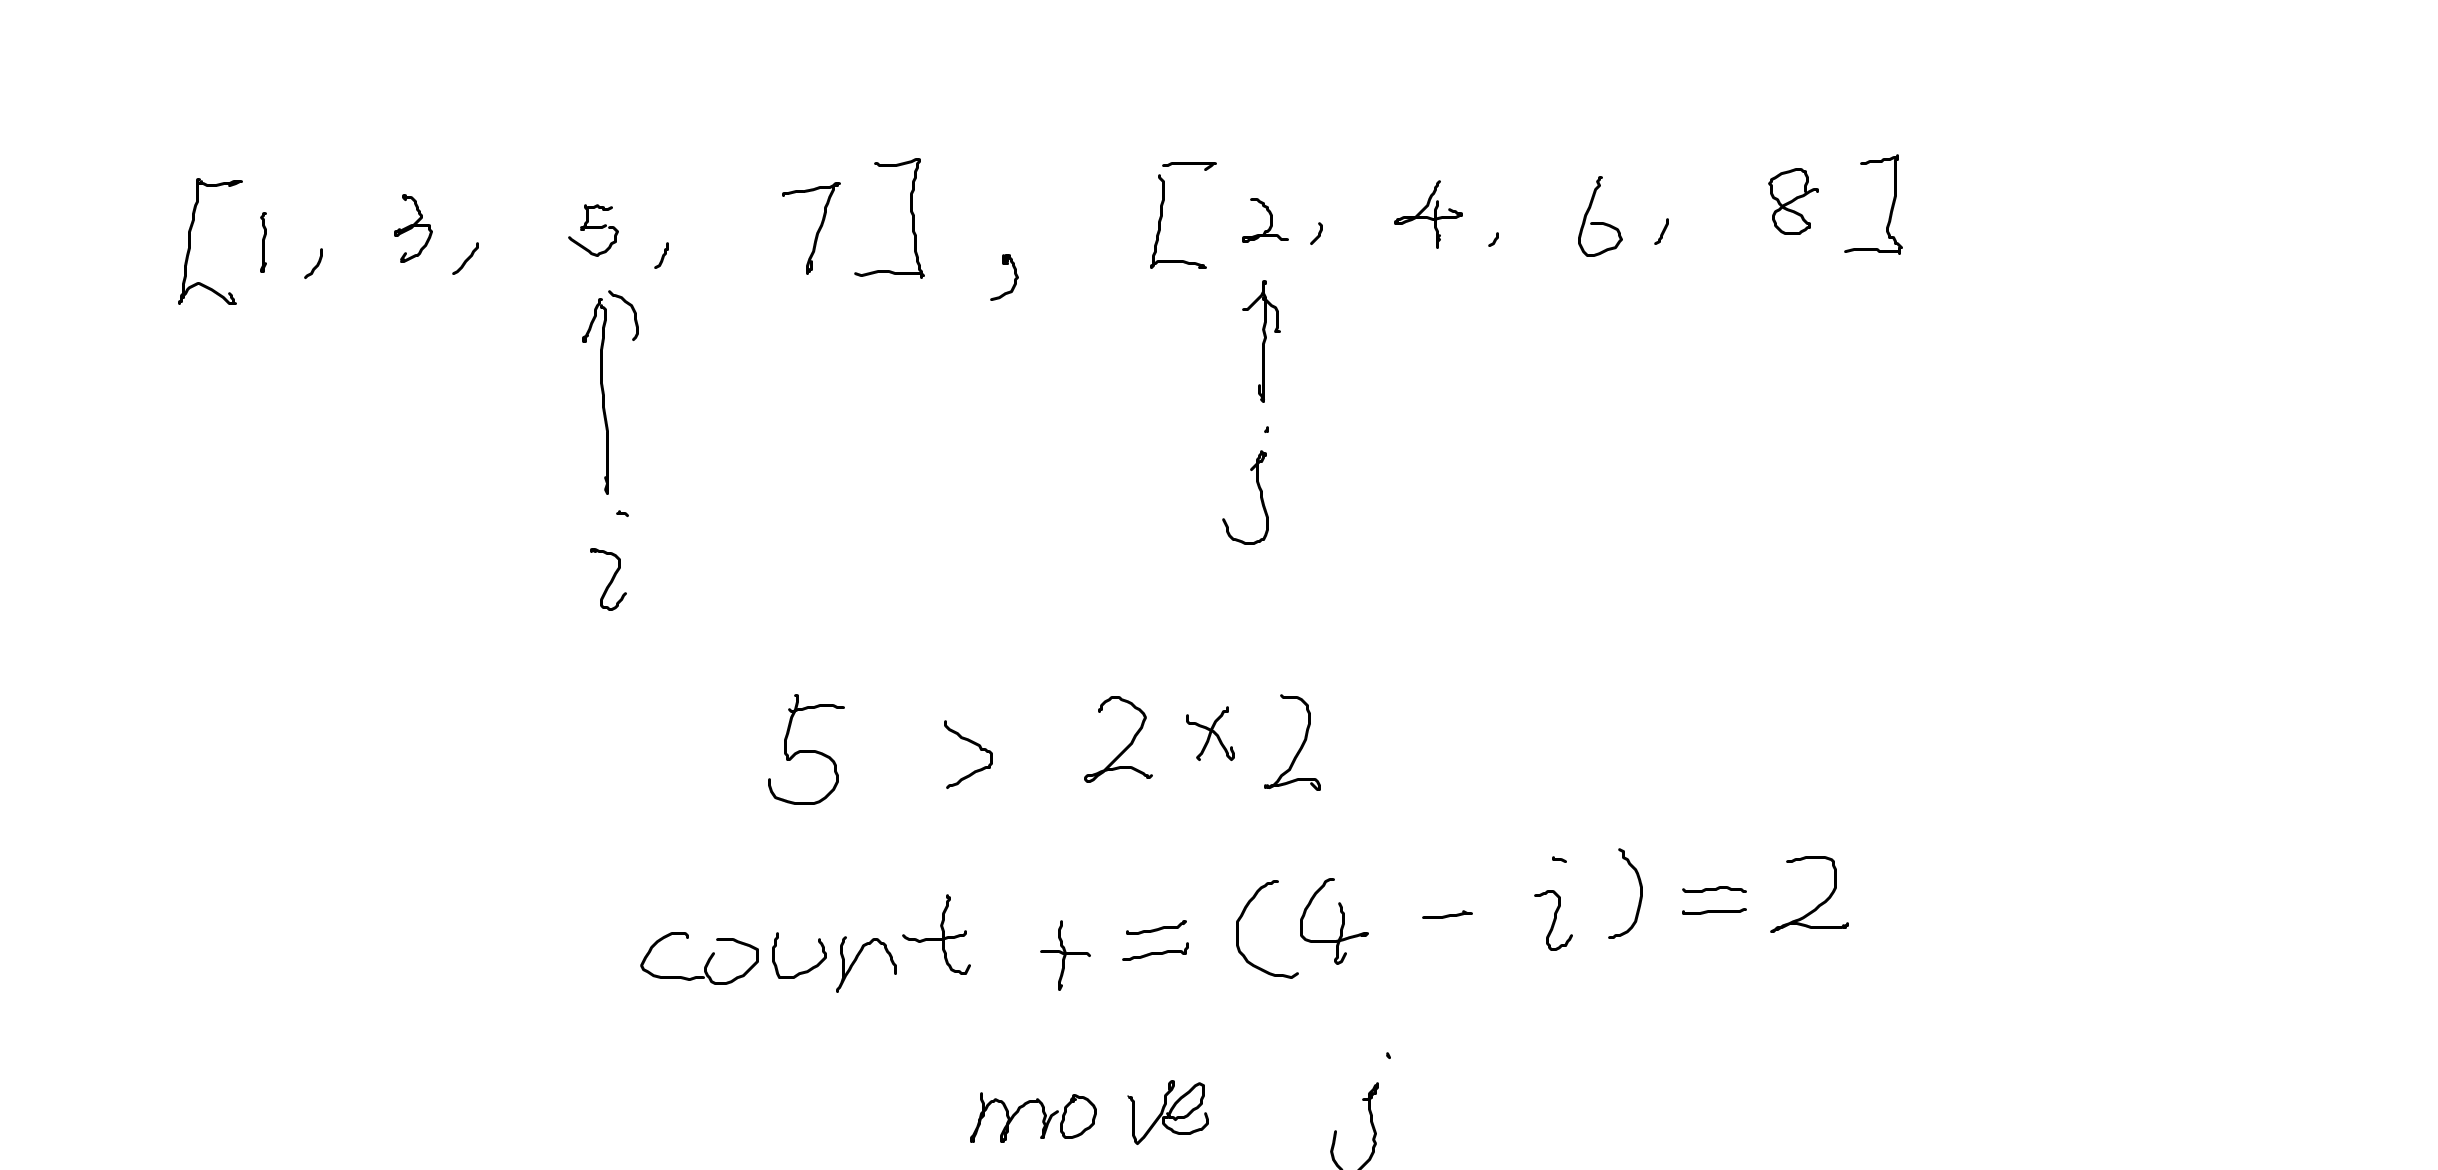 [1, 3, 5, 7], [2, 4, 6, 8]
i j
5 > 2 × 2
count += (4 - i) = 2
move j